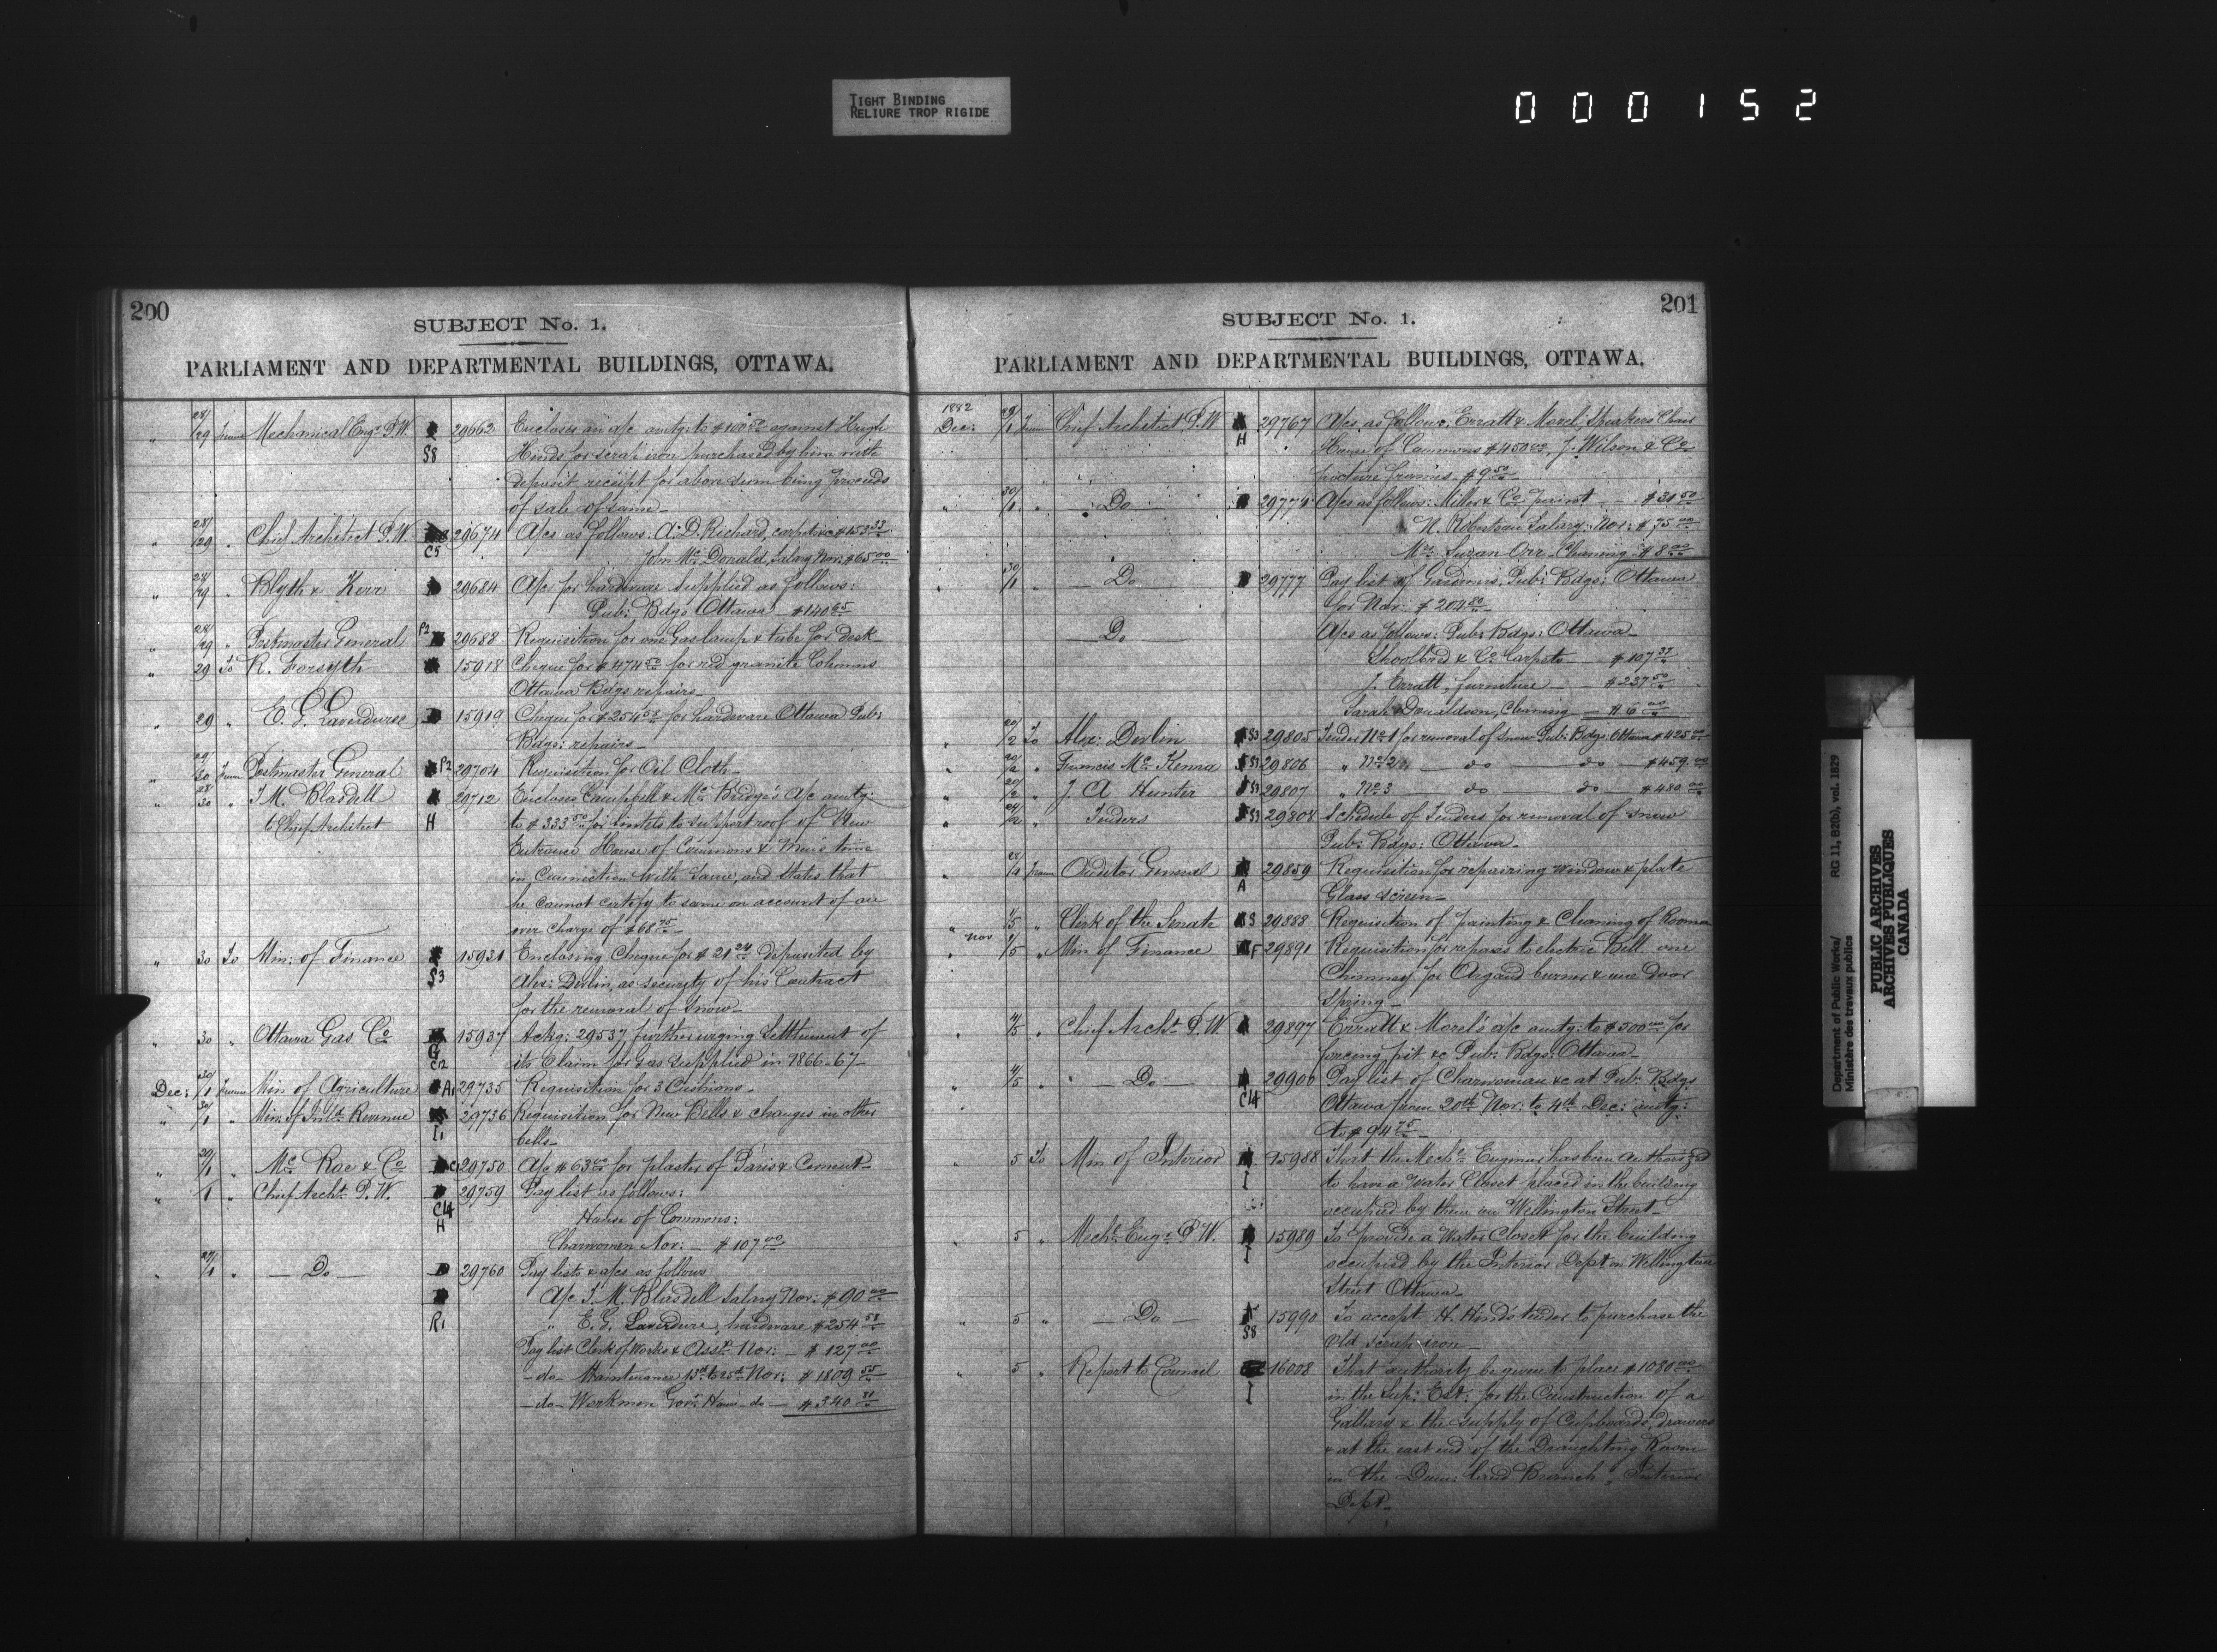 TIGHT BINDING
RELIURE TROP RIGIDE
000152
200
SUBJECT No. 1.
PARLIAMENT AND DEPARTMENTAL BUILDINGS, OTTAWA.
" 28/29 from Mechanical Engr. P.W. 29662 Encloses an a/c amtg: to $100.00 against Hugh
S8 Hinds for scrap iron purchased by him with
deposit receipt for above sum being proceeds
of sale of same
" 28/29 " Chief Architect P.W. 29674 A/cs as follows: A. D. Richard, carpets &c $153.33
C5 John McDonald, Salary Nov: $65.00
" 28/29 " Blyth & Kerr 29684 A/c for hardware supplied as follows:
Pub: Bdgs Ottawa $140.65
" 28/29 " Postmaster General P2 29688 Requisition for one Gas lamp & tube for desk
" 29 To R. Forsyth 15918 Cheque for $474.50 for red granite Columns
Ottawa Bdgs repairs
" 29 " E. G. Laverdure 15919 Cheque for $254.58 for hardware Ottawa Pub:
Bdgs: repairs
" 29/30 from Postmaster General P2 29704 Requisition for Oil Cloth
" 28/30 " T. M. Blasdell 29712 Encloses Campbell & McBridge's a/c amtg:
to Chief Architect H to $333.50 for lintels to support roof of New
Entrance House of Commons & Men's time
in Connection with same, and states that
he cannot certify to same on account of an
over charge of $68.75
" 30 To Min: of Finance 15931 Enclosing Cheque for $21.24 deposited by
S3 Alex: Devlin, as security of his Contract
for the removals of Snow
" 30 " Ottawa Gas Co 15937 Ackg: 29537, further urging Settlement of
G C12 its Claim for Gas supplied in 1866-67
Dec: 30/1 from Min of Agriculture A1 29735 Requisition for 3 Cushions
" 30/1 " Min: of Inld. Revenue 29736 Requisition for New Bells & changes in other
I1 bells
" 29/1 " McRae & Co 29750 A/c $63.00 for plaster of Paris & Cement
" 1 " Chief Archt. P.W. 29759 Pay list as follows:
C14 House of Commons:
H Charwomen Nov: $107.00
29/1 " Do 29760 Pay lists & a/cs as follows
A/c T. M. Blasdell Salary Nov: $90.00
R1 " E. G. Laverdure, hardware $254.58
Pay list Clerk of Works & Asst. Nov: $127.00
do Maintenance 15th to 25th Nov: $1809.55
do Workmen Govr. House do $340.80
201
SUBJECT No. 1.
PARLIAMENT AND DEPARTMENTAL BUILDINGS, OTTAWA.
1882
Dec: 29/1 from Chief Architect P.W. 29767 A/cs as follows: Erratt & Morel; Speakers Chair
H House of Commons $450.00, J. Wilson & Co
picture frames $9.50
" 30/1 " Do 29774 A/cs as follows: Miller & Co paint $31.50
N. Robertson Salary: Nov: $75.00
Mrs Suzan Orr Cleaning $8.00
" 30/1 " Do 29777 Pay list of Gardiners Pub: Bdgs: Ottawa
for Nov: $204.80
Do A/cs as follows: Pub: Bdgs: Ottawa
Shoolbred & Co Carpets $107.37
J. Erratt, furniture $237.50
Sarah Donaldson, Cleaning $6.00
" 20/2 To Alex: Devlin S3 29805 Tender No 1 for removal of snow Pub: Bdgs: Ottawa $425.00
" 20/2 " Francis McKenna S3 29806 " No 2 do do $459.00
" 20/2 " J. A Hunter S3 29807 " No 3 do do $480.00
" 24/2 " Tenders S3 29804 Schedule of Tenders for removal of snow
Pub: Bdgs: Ottawa
" 28/4 from Auditor General 29859 Requisition for repairing window & plate
A Glass screen
" 1/5 " Clerk of the Senate S 29888 Requisition of painting & Cleaning of Rooms
nov
" 1/5 " Min of Finance F 29891 Requisition for repairs to electric Bell one
Chimney for Argand burner & one Door
Spring
" 4/5 " Chief Archt. P.W. 29897 Erratt & Morel's a/c amtg: to $300.00 for
pit &c Pub: Bdgs: Ottawa
" 4/5 " Do 29900 Pay list of Charwoman &c at Pub: Bdgs
C14 Ottawa from 20th Nov: to 4th Dec: amtg:
to $94.75
" 5 To Min of Interior 15988 That the Mechl. Engineer has been authorized
I to have a Water Closet placed in the building
occupied by them on Wellington Street
" 5 " Mechl. Engr. P.W. 15989 To provide a Water Closet for the building
I occupied by the Interior Dept. on Wellington
Street Ottawa
" 5 " Do 15990 To accept H. Hind's tender to purchase the
S8 Old scrap iron
" 5 " Report to Council 16008 That authority be given to place $1080.00
I in the Sup: Est: for the Construction of a
Gallary & the supply of Cupboards, drawers
& at the east end of the Draughting Room
in the Dom: Land Branch, Interior
Dept.
Department of Public Works/ RG 11, B2(b), vol. 1829
Ministère des travaux publics
PUBLIC ARCHIVES
ARCHIVES PUBLIQUES
CANADA